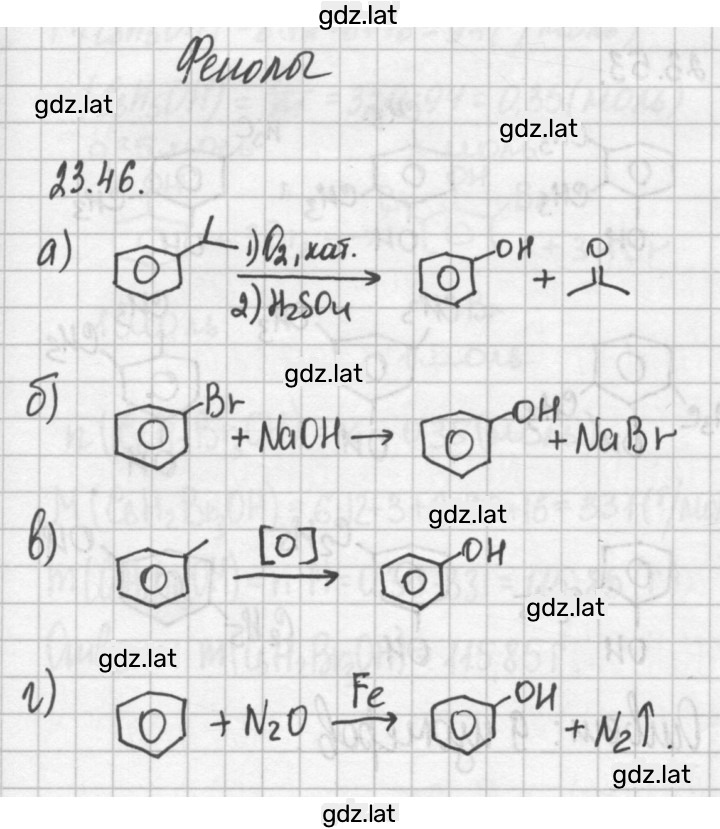 gdz.lat
Фенолы
gdz.lat
gdz.lat
23.46.
а) 1) O₂, кат. 2) H₂SO₄ OH + O
gdz.lat
б) Br + NaOH → OH + NaBr
gdz.lat
в) [O] OH
gdz.lat
gdz.lat
г) + N₂O Fe → OH + N₂↑.
gdz.lat
gdz.lat